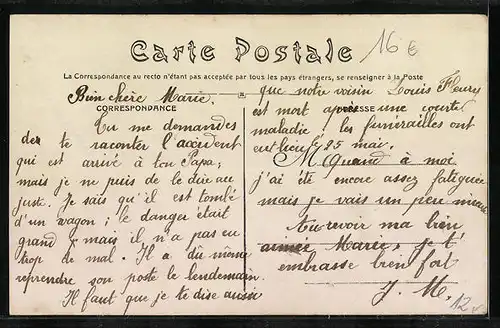 Carte Postale
16 €
La Correspondance au recto n'étant pas acceptée par tous les pays étrangers, se renseigner à la Poste
Bien chère Marie.
CORRESPONDANCE
Tu me demandes
de te raconter l'accident
qui est arrivé à ton Papa;
mais je ne puis de le dire au
juste. Je sais qu'il est tombé
d'un wagon; le danger était
grand, mais il n'a pas eu
trop de mal. Il a dû même
reprendre son poste le lendemain.
Il faut que je te dise aussi
que notre voisin Louis Fleury
est mort après une courte
ADRESSE
maladie, les funérailles ont
eut lieu le 25 mai.
M Quand à moi
j'ai été encore assez fatiguée
mais je vais un peu mieux
Au revoir ma bien
aimée Marie, je t'
embrasse bien fort
J. M.
12